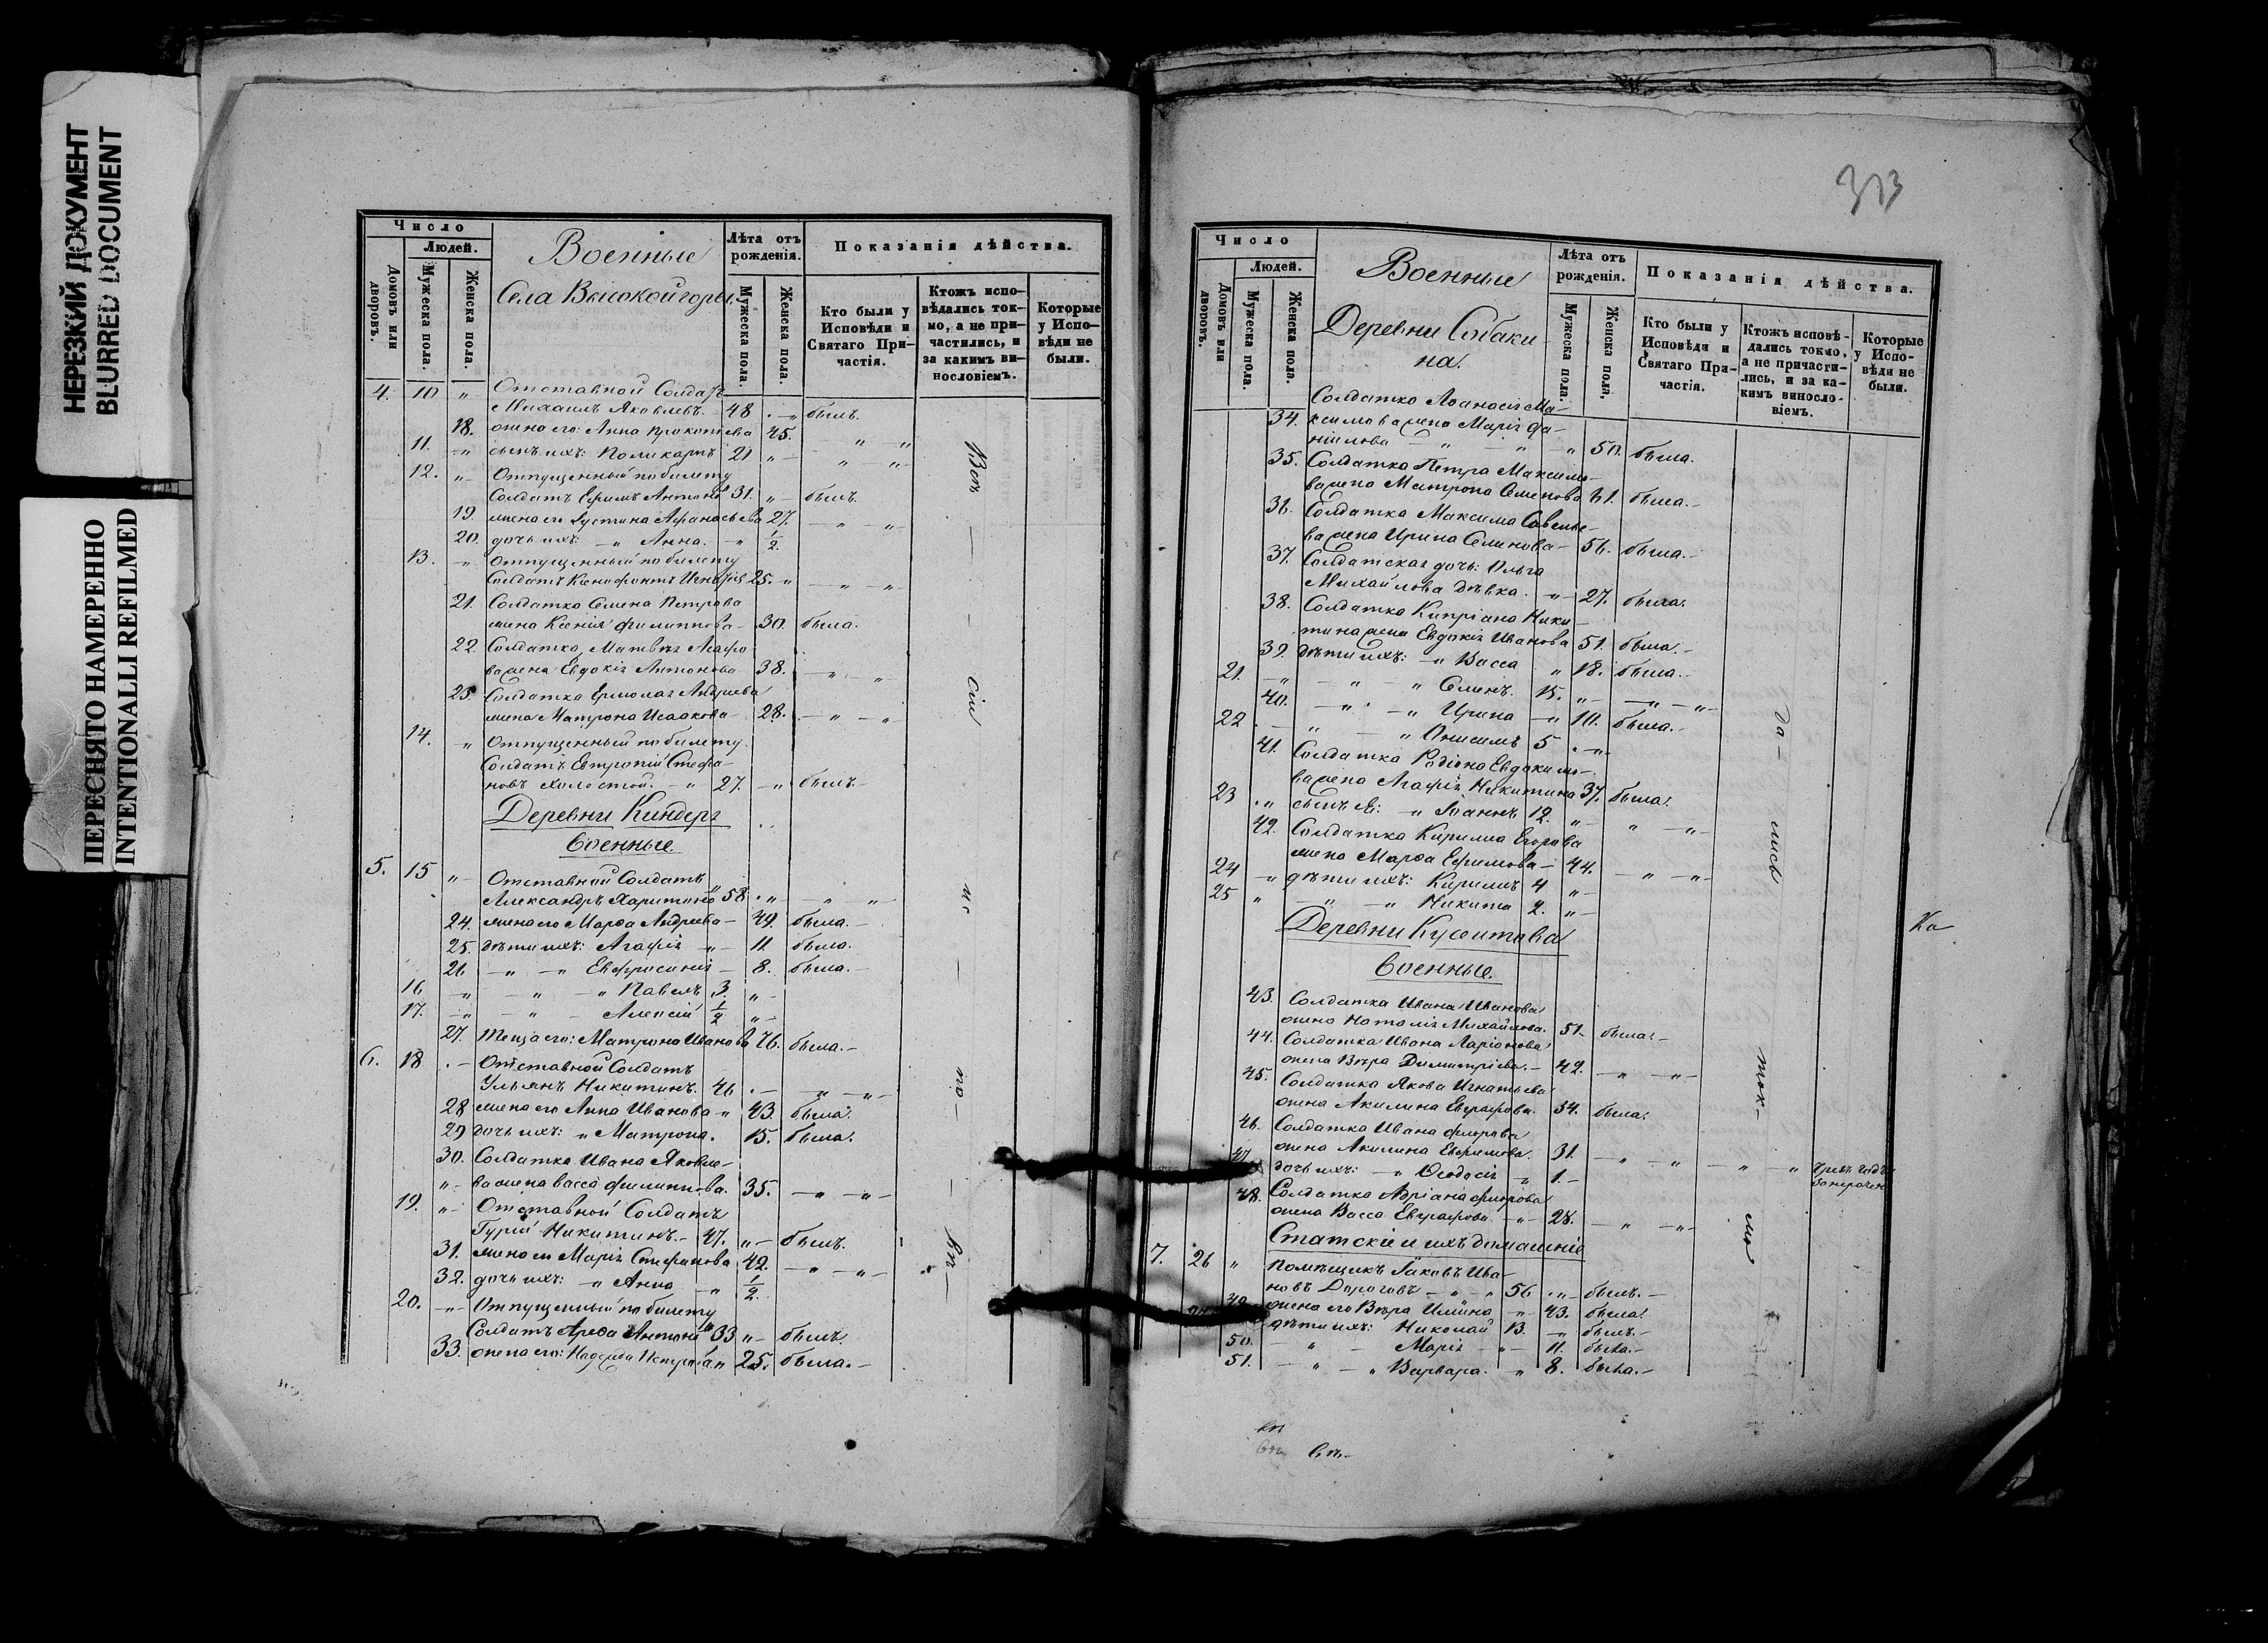 НЕРЕЗКИЙ ДОКУМЕНТ
BLURRED DOCUMENT
ПЕРЕСНЯТО НАМЕРЕННО
INTENTIONALLI REFILMED
Число
Людей.
Домовъ или дворовъ.
Мужеска пола.
Женска пола.
Военные
Села Высокой горы.
Лѣта отъ рожденія.
Мужеска пола.
Женска пола.
Показанія дѣйства.
Кто были у Исповѣди и Святаго Причастія.
Ктожъ исповѣдались токмо, а не причастились, и за какимъ винословіемъ.
Которые у Исповѣди не были.
4. 10 „ Отставной Солдатъ
Михаилъ Яковлевъ. 48 „ былъ.
18. жена его: Анна Прокопіева 45. „ „
11. „ сынъ ихъ: Поликарпъ 21 „ „ „
12. „ Отпущенный по билету
Солдатъ Ефимъ Антоно 31. „ былъ.
19. жена его Устина Афанасьева 27. „ „
20. дочь ихъ: „ Анна. „ 1/2
13. „ Отпущенный по билету
Солдатъ Ксенофонтъ 25. „ „ „
21. Солдатка Семена Петрова
жена Ксенія Филиппова 30. была.
22. Солдатка Матвѣя Агафо
ва жена Евдокія Антонова 38. „ „
23. Солдатка Ермолая Андреева
жена Матрона Исаакова 28. „ „
14. „ Отпущенный по билету
Солдатъ Евтропій Стефа-
новъ холостой. „ 27. „ былъ.
Деревни Киндеря
военные.
5. 15 „ Отставной Солдатъ
Александръ Харитоно 58. „ „ „
24. жена его Марѳа Андреева 49. была.
25. дѣти ихъ: Агафія „ 11 была.
26 „ „ Евфросинія 8. была.
16 „ „ „ Павелъ 3. „
17. „ „ Алексій 1/2 „
27. Теща его: Матрона Иванова 76. была.
6. 18 Отставной Солдатъ
Ульянъ Никитинъ. 46 „ „
28 жена его Анна Иванова „ 43. была.
29 дочь ихъ: „ Матрона. 15. была.
30. Солдатка Ивана Яковле-
„ ва жена Васса Филиппова. 35. „ „
19. „ Отставной Солдатъ
Гурій Никитинъ. 47. „ былъ.
31. жена его Марія Стефанова 42. „ „
32. дочь ихъ: „ Анна „ 1/2.
20. „ Отпущенный по билету
Солдатъ Арефа Антоно 33 „ былъ
33. жена его: Надежда 25. была.
Всѣ
сіи
не
то
вѣ
373
Число
Людей.
Домовъ или дворовъ.
Мужеска пола.
Женска пола.
Военные
Деревни Собаки-
на.
Лѣта отъ рожденія.
Мужеска пола.
Женска пола.
Показанія дѣйства.
Кто были у Исповѣди и Святаго Причастія.
Ктожъ исповѣдались токмо, а не причастились, и за какимъ винословіемъ.
Которые у Исповѣди не были.
Солдатка Аѳанасія Ма-
34. ксимова жена Марія Да-
ніилова „ „ „ 50. была.
35. Солдатка Петра Максимо-
ва жена Матрона Семенова 61. была.
36. Солдатка Максима Савелье-
ва жена Ирина Семенова 56. была.
37. Солдатская дочь: Ольга
Михайлова дѣвка. „ 27. была.
38. Солдатка Кипріана Ники-
тина жена Евдокія Иванова 51. была.
39. дѣти ихъ: „ Васса „ 18. была.
21. „ „ „ Семенъ. 15. „ „ „
40. „ „ Ирина „ 10. была.
22 „ „ Онисимъ 5 „
41. Солдатка Родіона Евдокимо-
ва жена Агафія Никитина 37. была.
23 „ сынъ ея: „ Іоаннъ 12. „ „ „
42. Солдатка Кирилла Егорова
жена Марѳа Ефимова 44. „ „
24 „ дѣти ихъ: Кириллъ 4 „
25 „ „ „ Никита 2. „
Деревни Куюитова
военные.
43. Солдатка Ивана Иванова
жена Наталія Михайлова. 51. была.
44. Солдатка Ивана Ларіонова
жена Вѣра Димитріева. 42. „ „
45. Солдатка Якова Игнатьева
жена Акилина Евграфова. 34. была.
46. Солдатка Ивана Флорова
жена Акилина Ефимова. 31. „ „ „ „
47 дочь ихъ: „ Ѳеодосія „ 1.
48. Солдатка Адріана Флорова
жена Васса Евграфова. „ 28. „ „
Статскіе и ихъ домашніе
7. 26 „ Помѣщикъ Яковъ Ива-
новъ Дороговъ „ „ 56 „ былъ.
49 жена его Вѣра Ильина „ 43. была.
дѣти ихъ: Николай 13. „ былъ.
50. „ Марія „ 11. была.
51. „ „ Варвара. „ 8. была.
да
лись
ток-
мо
Ка
вп.